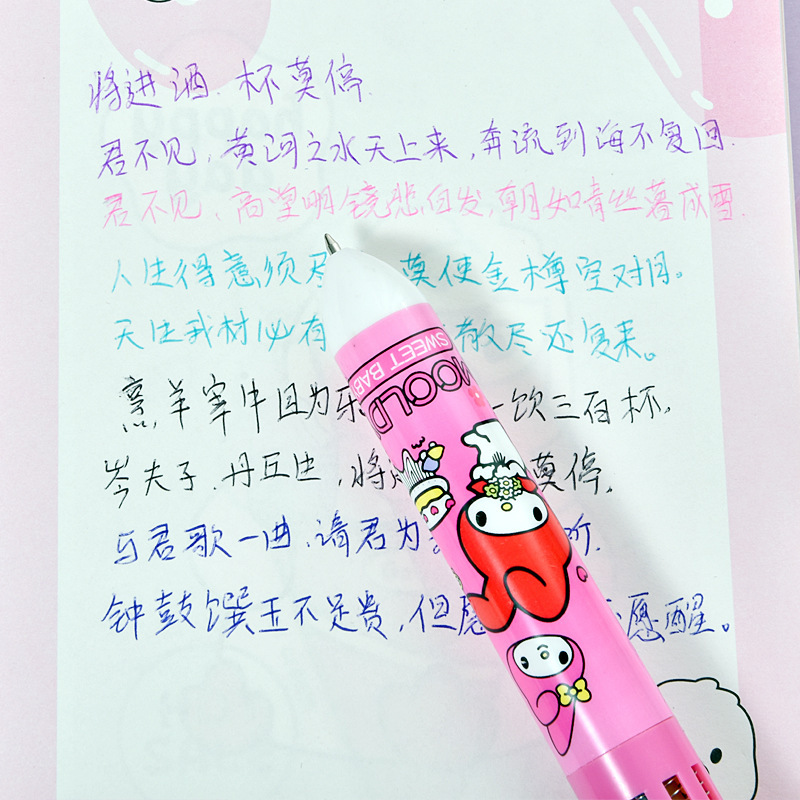 将进酒.杯莫停.
君不见,黄河之水天上来,奔流到海不复回.
君不见,高堂明镜悲白发,朝如青丝暮成雪.
人生得意须尽 莫使金樽空对月。
天生我材必有 散尽还复来。
烹羊宰牛且为乐 一饮三百杯,
岑夫子.丹丘生,将 莫停,
与君歌一曲.请君为 听.
钟鼓馔玉不足贵,但愿 愿醒。
SWEET BAB